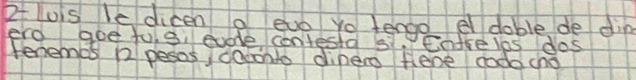 2- luis le dicen a eva yo tengo el doble de din
ero que tu, si, eva le contesta si, Entre los dos
tenemos 12 pesos, ¿cuanto dinero tiene cada cno